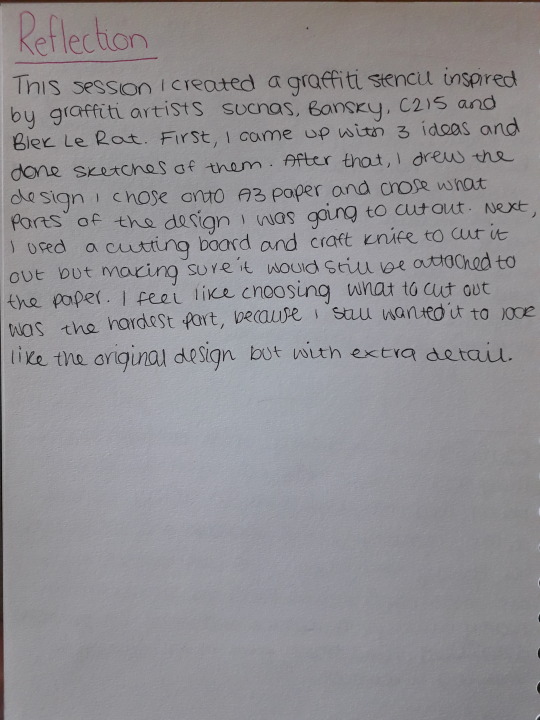 Reflection
This session I created a graffiti stencil inspired
by graffiti artists suchas, Bansky, C215 and
Blek Le Rat. First, I came up with 3 ideas and
done sketches of them. After that, I drew the
design I chose onto A3 paper and chose what
Parts of the design I was going to cut out. Next,
I used a cutting board and craft knife to cut it
out but making sure it would still be attached to
the paper. I feel like choosing what to cut out
was the hardest part, because I still wanted it to look
like the original design but with extra detail.